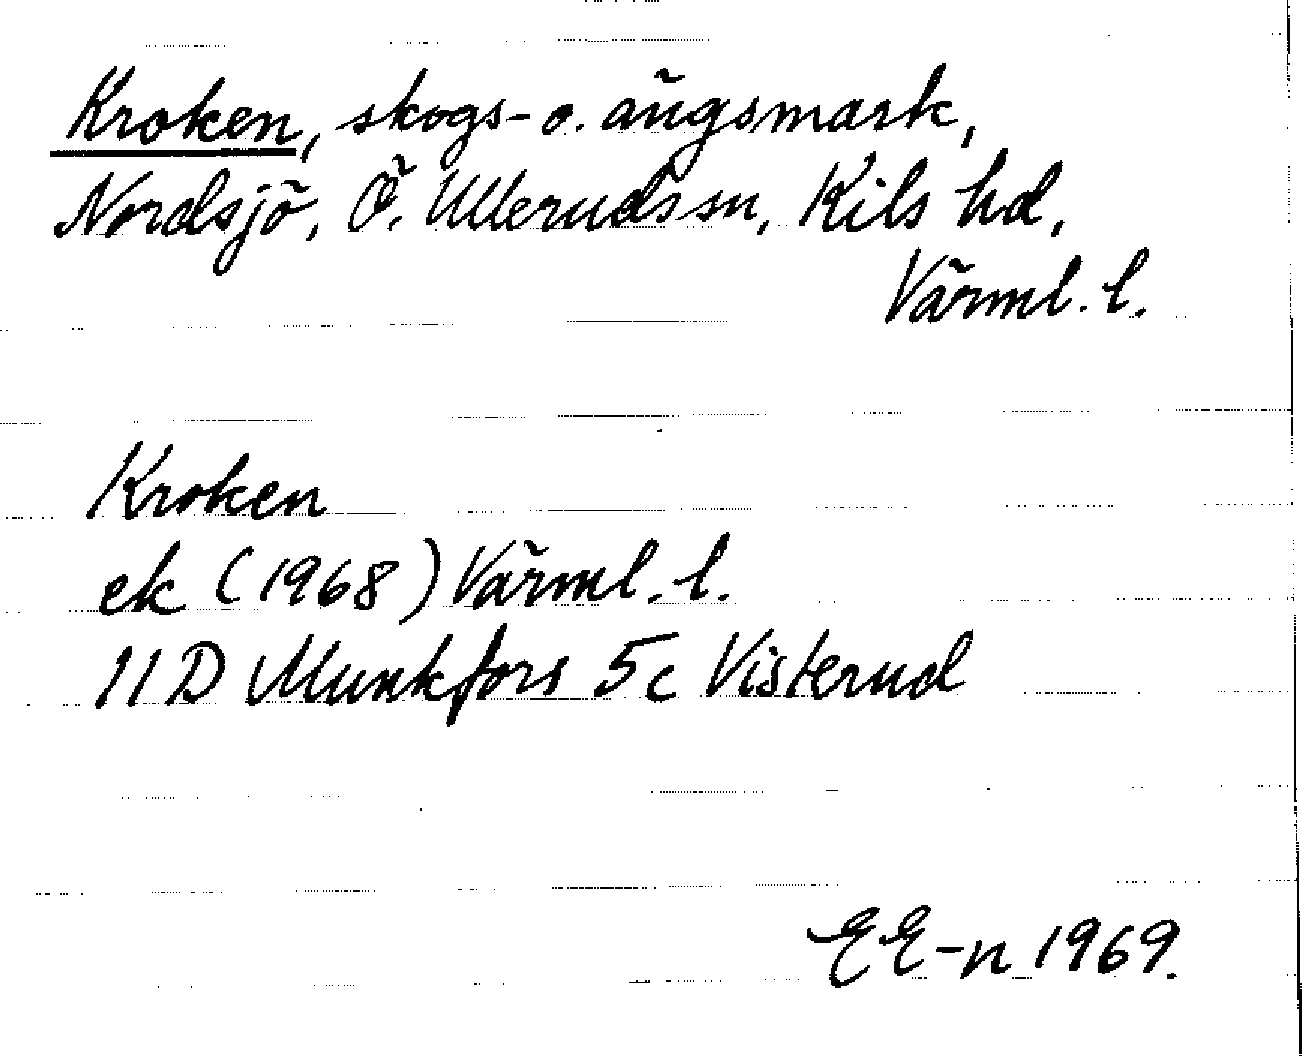 Kroken, skogs- o. ängsmark,
Nordsjö, Ö. Ullerudssn, Kils hd,
Värml. l.
Kroken
ek (1968) Värml. l.
11D Munkfors 5c Visterud
EE-n 1969.